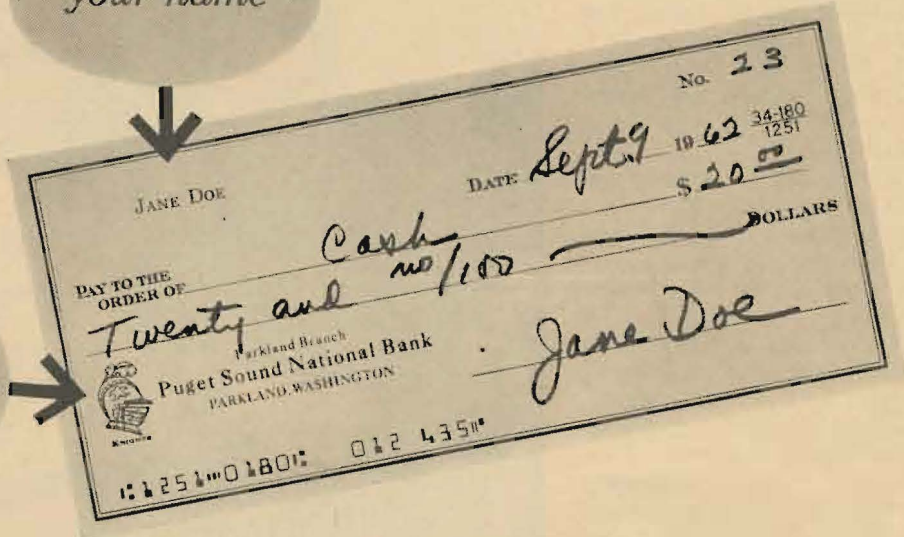 your name
No. 23
34-180
1251
JANE DOE
DATE Sept. 9 1962
$ 20 00
Cash
PAY TO THE
ORDER OF
Twenty and no/100 DOLLARS
Parkland Branch
Puget Sound National Bank
PARKLAND, WASHINGTON
Jane Doe
⑆1251⑉0180⑆ 012 435⑈